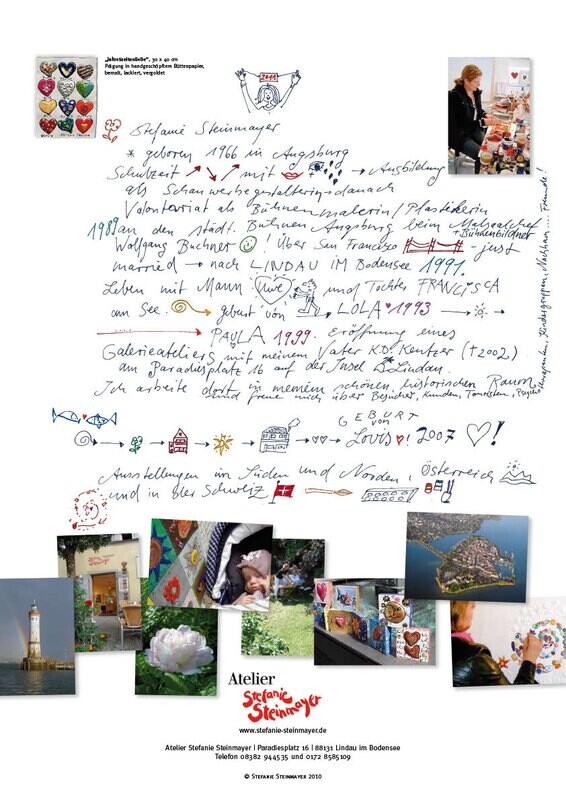 „Jahreszeitensüße“, 30 x 40 cm
Prägung in handgeschöpftem Büttenpapier,
bemalt, lackiert, vergoldet
2011
Stefanie Steinmayer
* geboren 1966 in Augsburg
Schulzeit mit → Ausbildung
als Schauwerbegestalterin → danach
Volontariat als Bühnenmalerin / Plastikerin
1989 an den städt. Bühnen Augsburg beim Malsaalchef + Bühnenbildner
Wolfgang Buchner ! Über San Francisco – just
married → nach LINDAU IM Bodensee 1991,
Leben mit Mann Uwe und Tochter FRANCISCA
am See. geburt von LOLA 1993 →
PAULA 1999. Eröffnung eines
Galerieateliers mit meinem Vater K.D. Kentzer († 2002)
am Paradiesplatz 16 auf der Insel Lindau.
Ich arbeite dort in meinem schönen, historischen Raum
und freue mich über Besucher, Kunden, Touristen,
Kindergruppen, Nachbarn.... Freunde!
GEBURT
von
Lovis! 2007 !
Ausstellungen im Süden und Norden, Österreich
und in der Schweiz
Atelier
Stefanie
Steinmayer
www.stefanie-steinmayer.de
Atelier Stefanie Steinmayer | Paradiesplatz 16 | 88131 Lindau im Bodensee
Telefon 08382 944535 und 0172 8585109
© Stefanie Steinmayer 2010